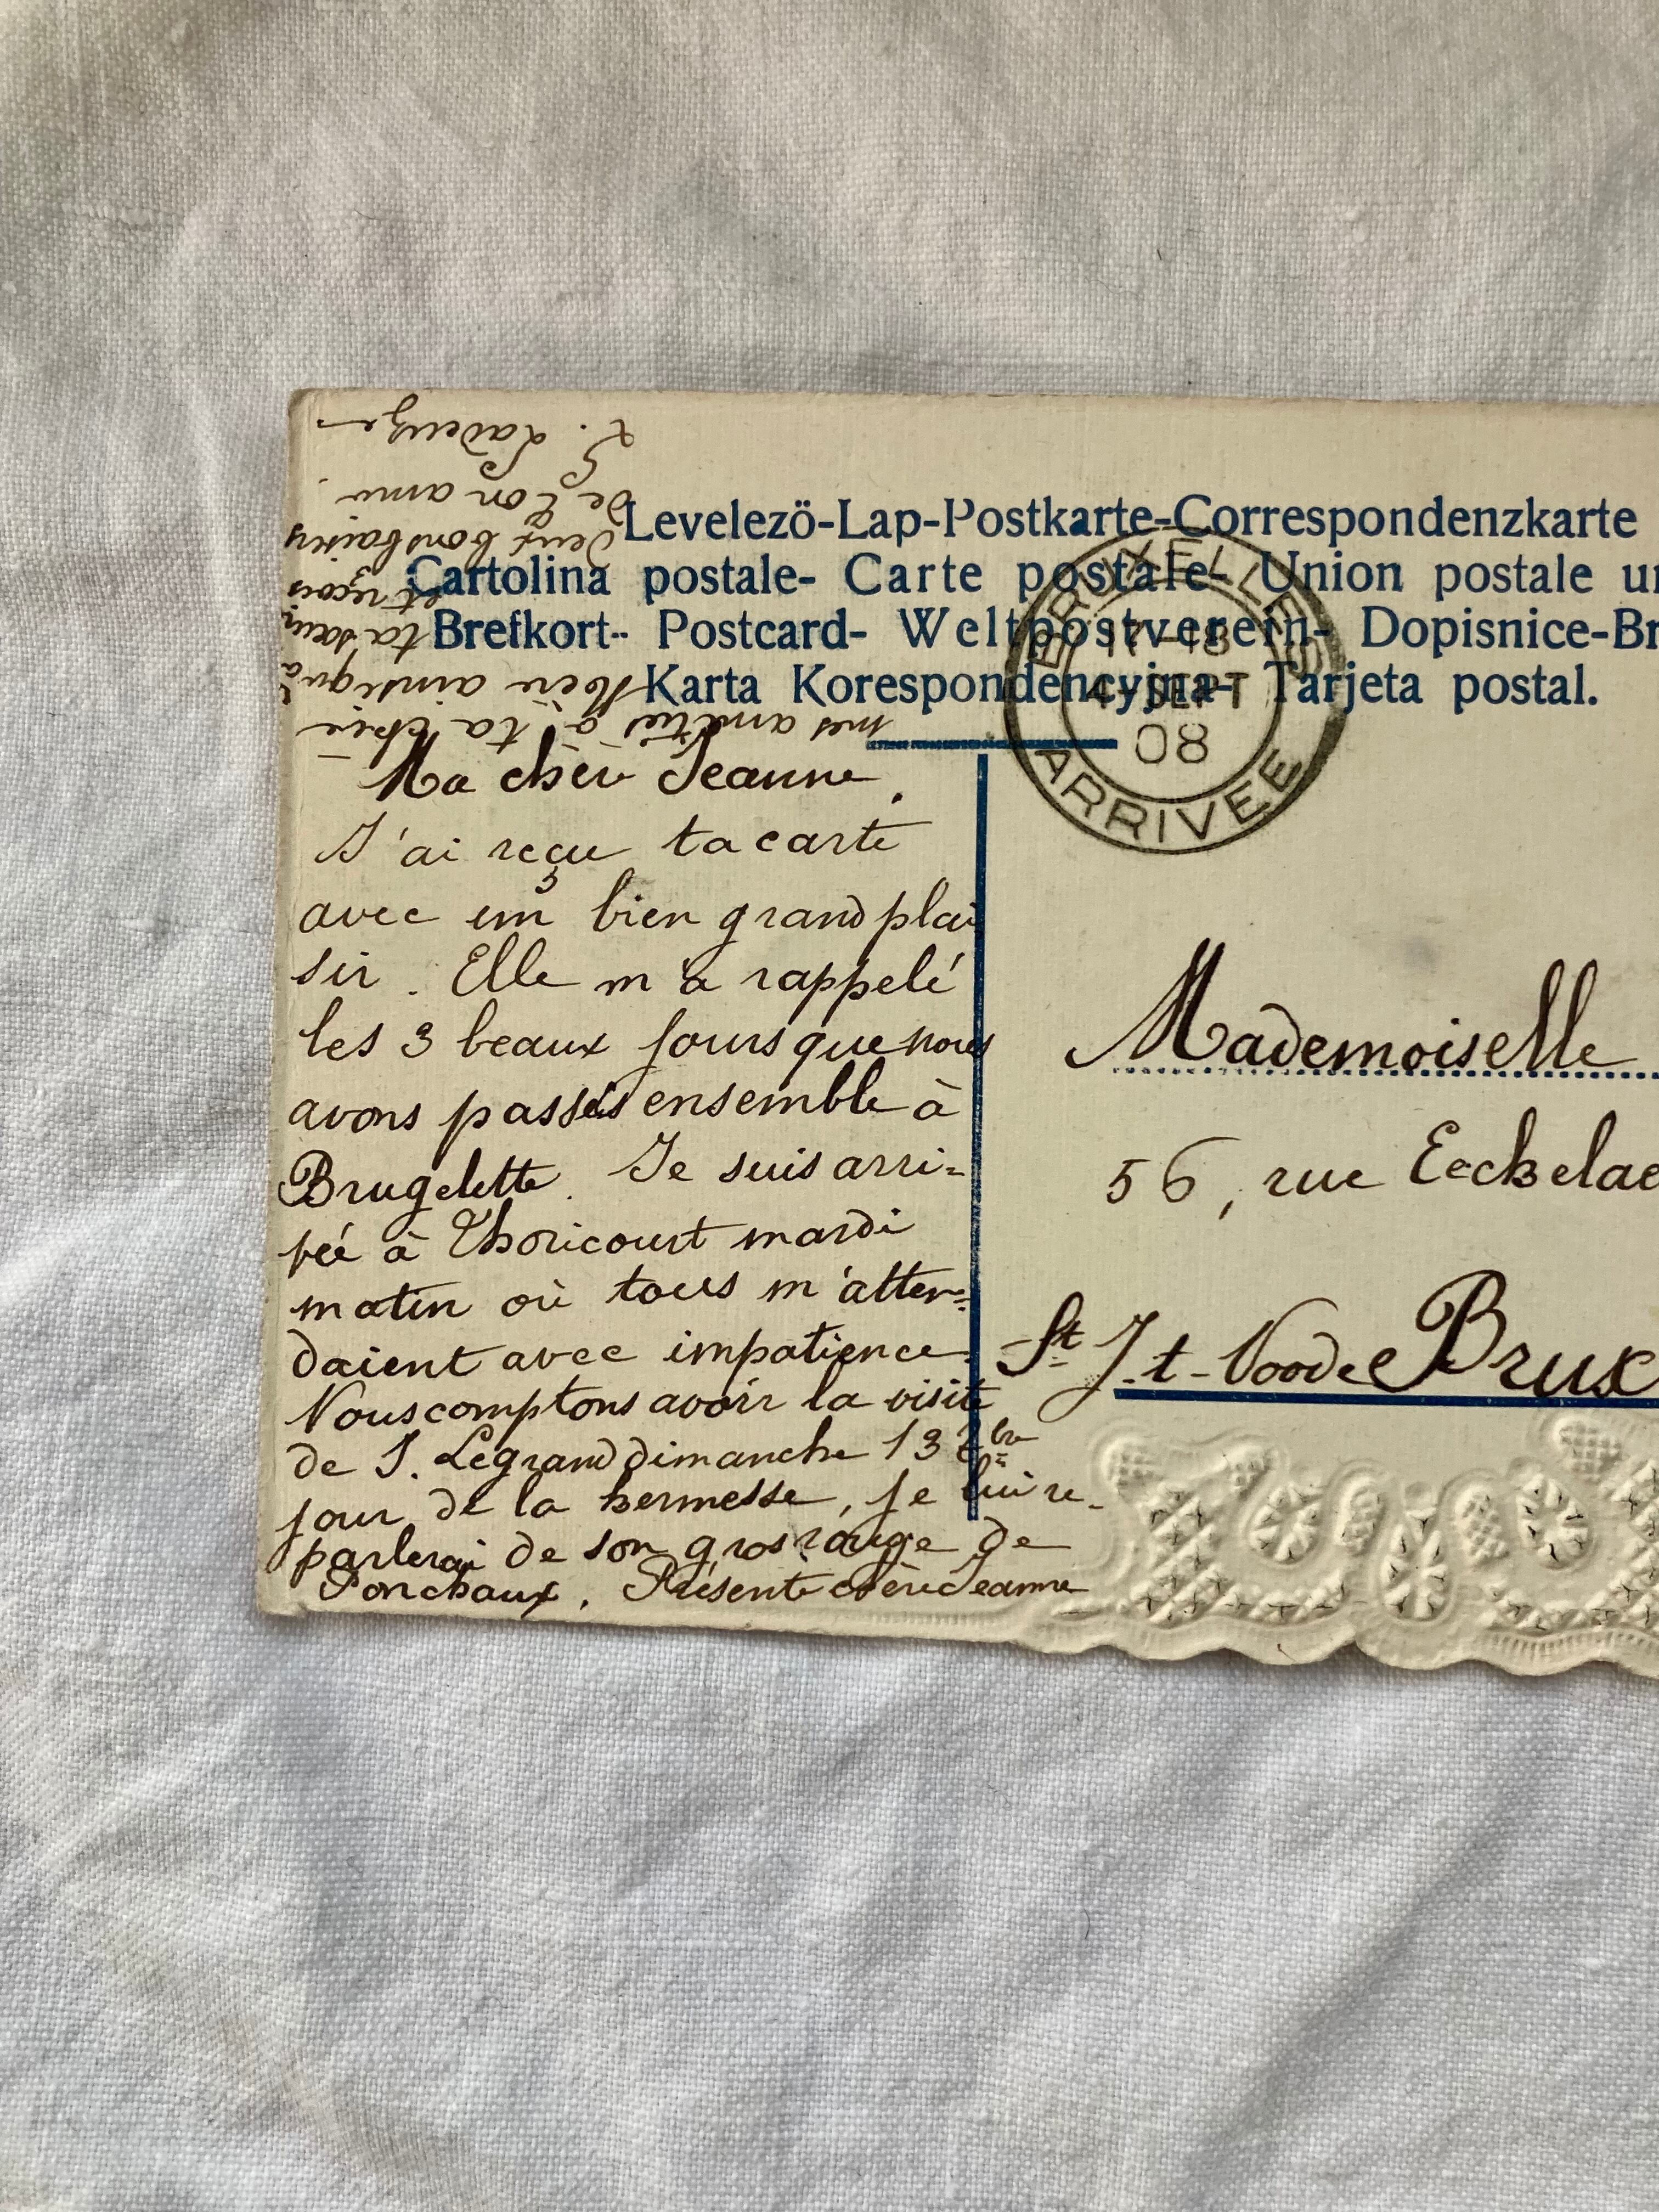 Levelezö-Lap-Postkarte-Correspondenzkarte
Cartolina postale- Carte postale- Union postale un
Brefkort- Postcard- Weltpostverein- Dopisnice-Br
Karta Korespondencyjna- Tarjeta postal.
BRUXELLES
17-18
4 SEPT
08
ARRIVEE
Ma chère Jeanne,
J'ai reçu ta carte
avec un bien grand plai
sir. Elle m'a rappelé
les 3 beaux jours que nous
avons passés ensemble à
Brugelette. Je suis arri=
vée à Thoricourt mardi
matin où tous m'atten=
daient avec impatience.
Nous comptons avoir la visite
de J. Legrand dimanche 13 7bre
jour de la kermesse, je lui re-
parlerai de son gros rouge de
Ponchaux. Présente chère Jeanne
mes amitiés à ta chère
Mère ainsi qu'à
ta sœur
et reçois
deux bons baisers
de ton amie.
Ladeuze
Mademoiselle
56, rue Eeckelae
St J.t-Noode Brux